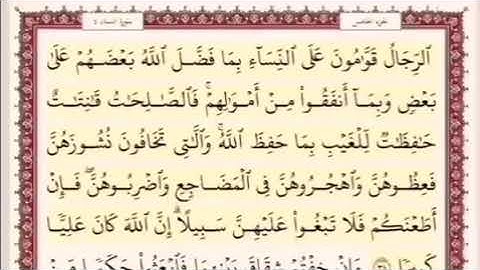 الجزء الخامس
سورة النساء ٤
الرِّجَالُ قَوَّٰمُونَ عَلَى النِّسَاءِ بِمَا فَضَّلَ اللَّهُ بَعْضَهُمْ عَلَىٰ
بَعْضٍ وَبِمَا أَنفَقُوا مِنْ أَمْوَٰلِهِمْ ۚ فَالصَّٰلِحَٰتُ قَٰنِتَٰتٌ
حَٰفِظَٰتٌ لِّلْغَيْبِ بِمَا حَفِظَ اللَّهُ ۚ وَالَّٰتِي تَخَافُونَ نُشُوزَهُنَّ
فَعِظُوهُنَّ وَاهْجُرُوهُنَّ فِي الْمَضَاجِعِ وَاضْرِبُوهُنَّ ۖ فَإِنْ
أَطَعْنَكُمْ فَلَا تَبْغُوا عَلَيْهِنَّ سَبِيلًا ۗ إِنَّ اللَّهَ كَانَ عَلِيًّا
كَبِيرًا وَإِنْ خِفْتُمْ شِقَاقَ بَيْنِهِمَا فَابْعَثُوا حَكَمًا مِّنْ